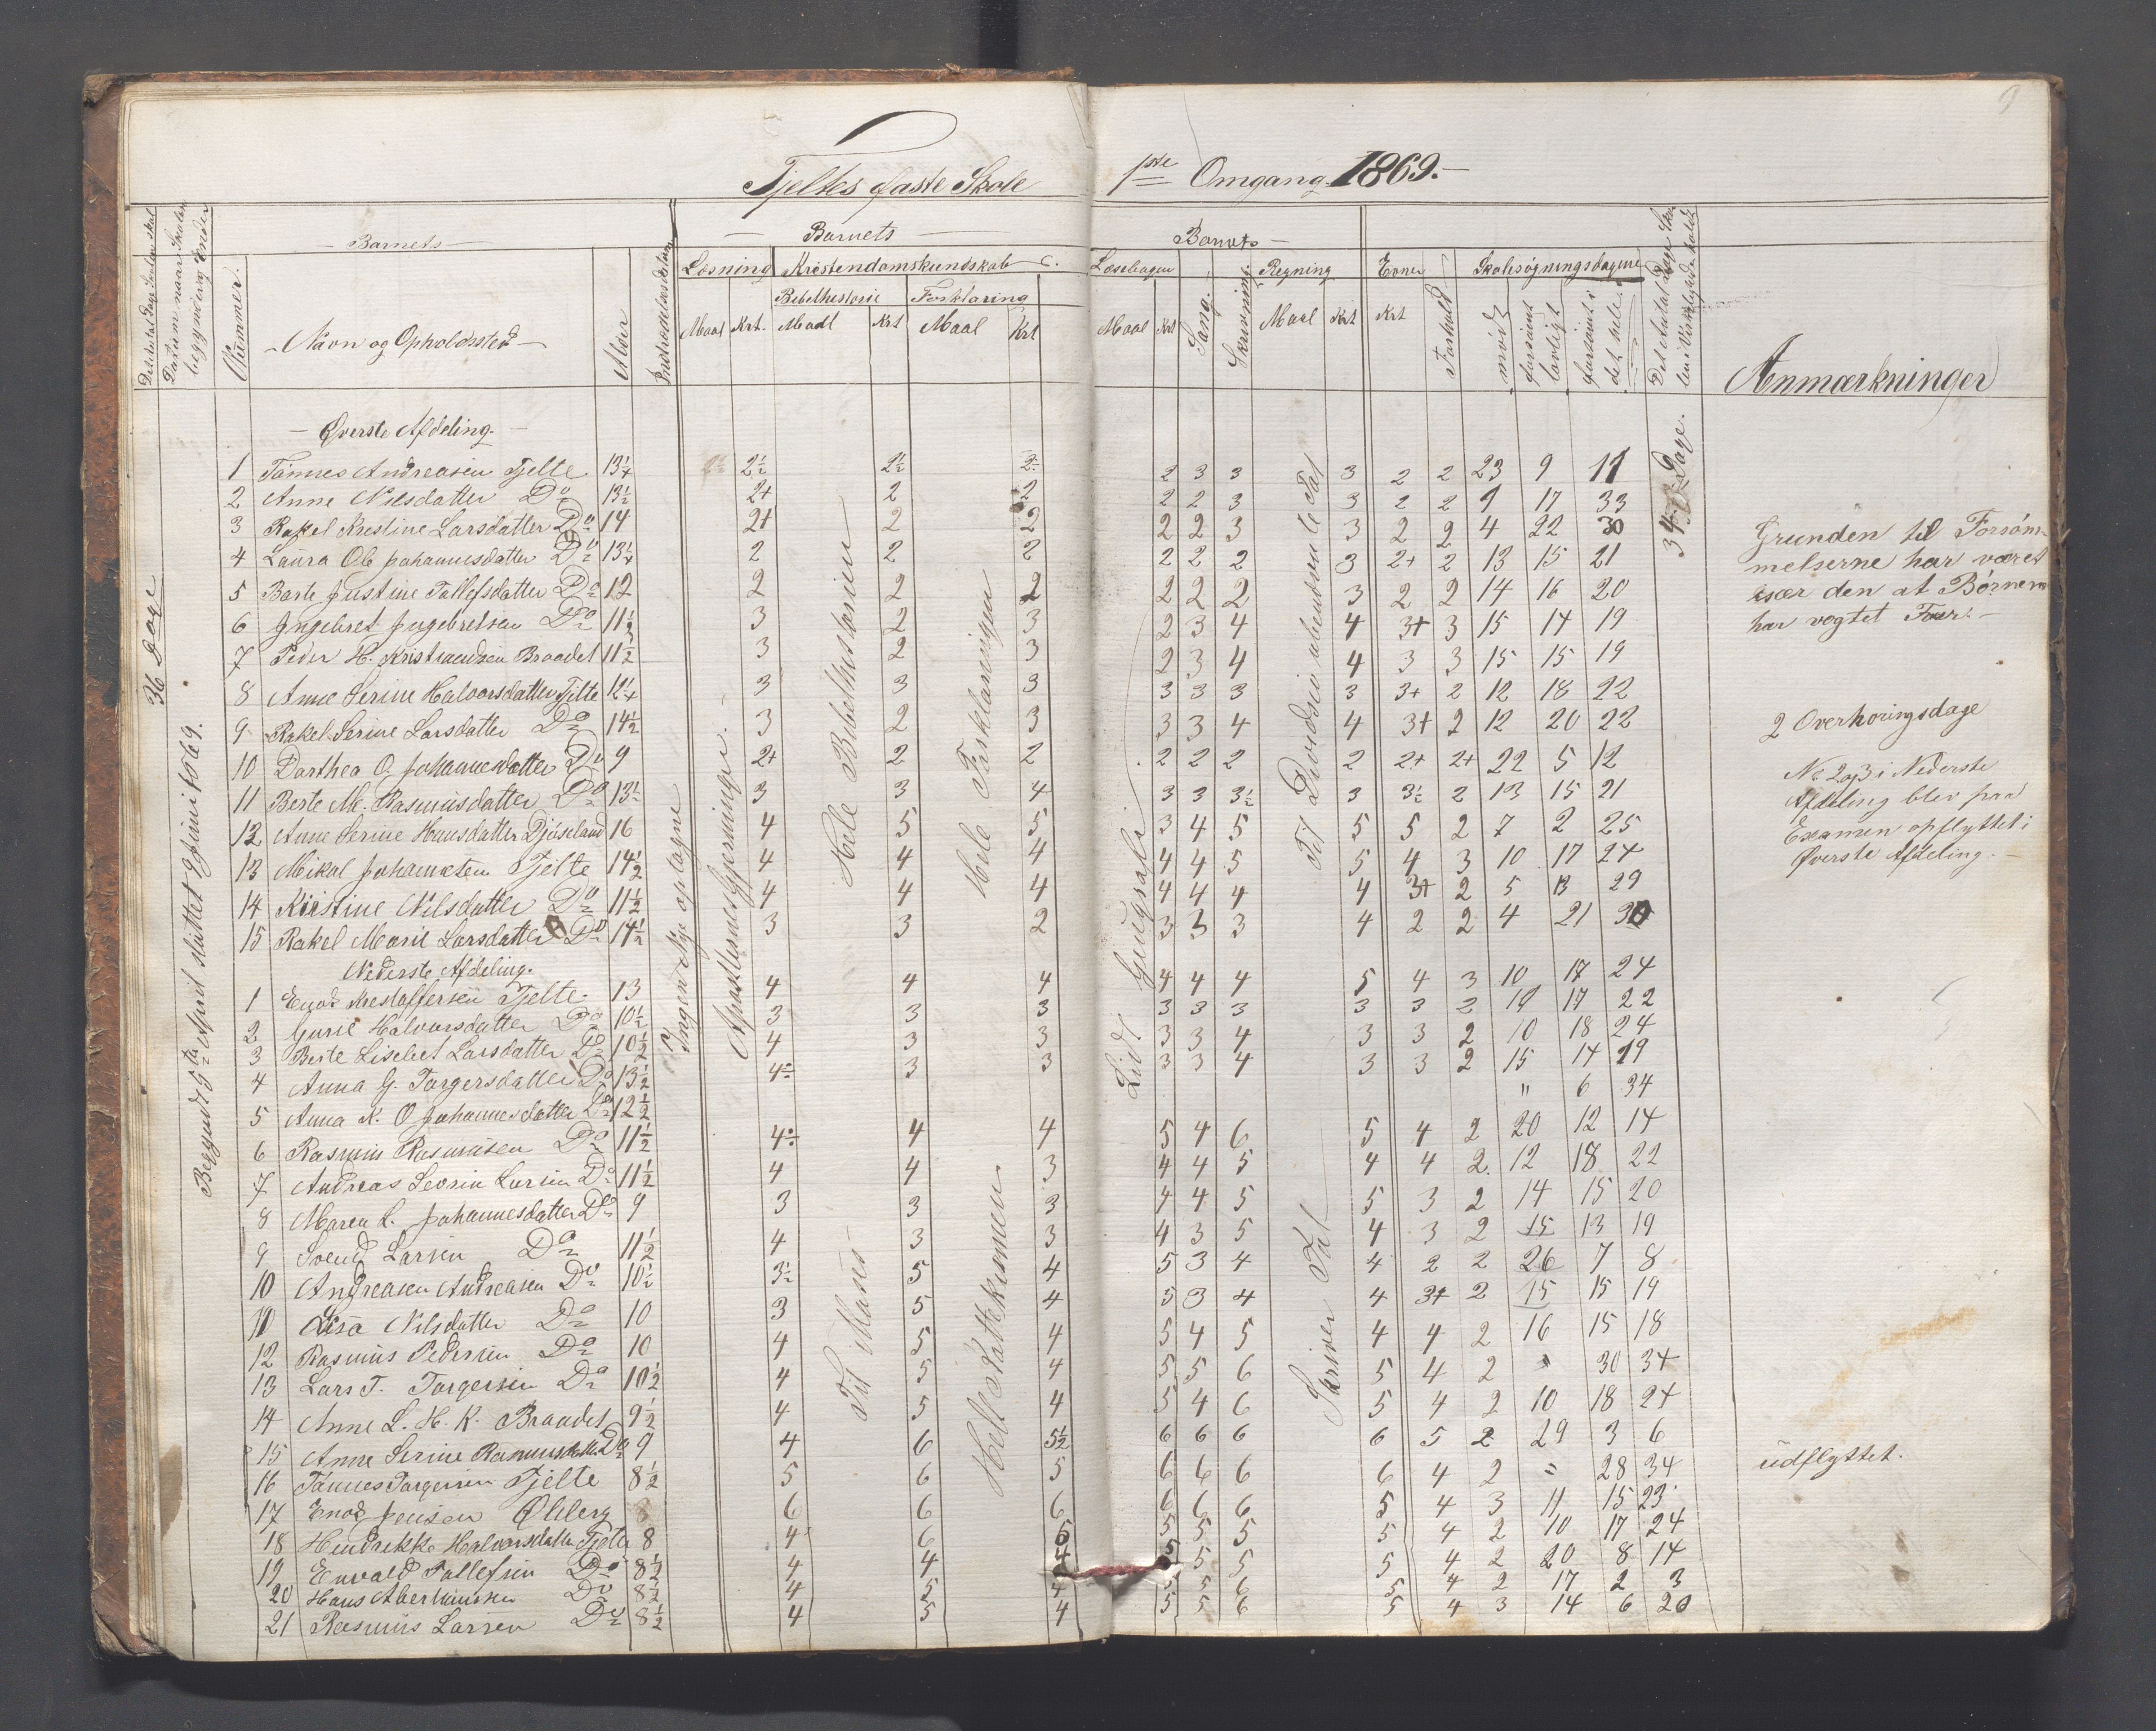 9
Tjeltes faste Skole 1ste Omgang 1869.-
Barnets Barnets Barnets
Det Antal Dage Skolen skal
Datum naar Skolen begynder og ender
Nummer.
Navn og Opholdssted
Alder
Indtrædelsesdatum
Læsning Kristendomskundskab
Bibelhistorie Forklaring
Maal Krt. Maal Krt Maal Krt
Læsebogen Sang. Skrivning. Regning Evner Skolesøgningsdagene
Maal Krt Maal Krt Krt Forhold mødt forsømt lovligt forsømt i det hele
Det Antal Dage Skolen i Virkeligheden holdt
Anmærkninger
36 Dage
Begyndt 5te April sluttet 9 Juni 1869.
Ingen Nye optagne
Apostlernes Gjerninger.
Hele Bibelhistorien
Hele Forklaringen
Lidt Geografi
Til Division ubenævnte Tal
34 Dage.
Øverste Afdeling.
1 Tønnes Andreasen Tjelte 13¼ 2½ 2½ 2 2 3 3 3 2 2 23 9 11
2 Anne Nilsdatter Do 13½ 2+ 2 2 2 2 3 3 2 2 9 17 33
3 Rakel Kristine Larsdatter Do 14 2+ 2 2 2 2 3 3 2 2 4 22 30
4 Laura Ol. Johannesdatter Do 13¼ 2 2 2 2 2 2 3 2+ 2 13 15 21
5 Barte Justine Tollefsdatter Do 12 2 2 2 2 2 2 3 2 2 14 16 20
6 Ingebret Ingebretsen Do 11½ 3 2 3 2 3 4 4 3+ 3 15 14 19
7 Peder H. Kristiandsen Braadet 11½ 3 2 3 2 3 4 4 3 3 15 15 19
8 Anne Serine Halvorsdatter Tjelte 12¼ 3 3 3 3 3 3 3 3+ 2 12 18 22
9 Rakel Serine Larsdatter Do 14½ 3 2 3 3 3 4 4 3+ 2 12 20 22
10 Dorthea O. Johannesdatter Do 9 2+ 2 2 2 2 2 2 2+ 2+ 22 5 12
11 Berte M. Rasmusdatter Do 13½ 3 3 4 3 3 3½ 3 3½ 2 13 15 21
12 Anne Serine Hansdatter 16 4 5 5 3 4 5 5 5 2 7 2 25
13 Mikal Johannesen Tjelte 14½ 4 4 4 4 4 5 5 4 3 10 17 24
14 Kirstine Nilsdatter Do 11½ 4 4 4 4 4 4 4 3+ 2 5 13 29
15 Rakel Marie Larsdatter Do 14½ 3 3 2 3 3 3 4 2 2 4 21 30
Grunden til Forsøm-
melserne har været
især den at Børnene
har vogtet Faar.-
2 Overhøringsdage
No 2 og 3 i Nederste
Afdeling blev paa
Examen opflyttet i
Øverste Afdeling.-
Nederste Afdeling.
Til Moses
Hele Kattekismen
Skriver Tal
1 Enok Kristoffersen Tjelte 13 4 4 4 4 4 4 5 4 3 10 17 24
2 Gurie Halvorsdatter Do 10½ 3 3 3 3 3 3 3 3 2 19 17 22
3 Berte Lisebet Larsdatter Do 10½ 4 3 3 3 3 4 3 3 2 10 18 24
4 Anna G. Torgersdatter Do 13½ 4 3 3 3 3 4 3 3 2 15 14 19
5 Anna K. O Johannesdatter Do 12½ " 6 34
6 Rasmus Rasmusen Do 11½ 4 4 4 5 4 6 5 4 2 20 12 14
7 Andreas Severin Larsen Do 11½ 4 4 3 4 4 5 4 4 2 12 18 22
8 Maren L. Johannesdatter Do 9 3 3 3 4 4 5 5 3 2 14 15 20
9 Svend Larsen Do 11½ 4 3 3 4 3 5 4 3 2 15 13 19
10 Andreasen Andreasen Do 10½ 3½ 5 4 5 3 4 4 2 2 26 7 8
11 Lisa Nilsdatter Do 10 3 5 4 5 3 4 4 3+ 2 15 15 19
12 Rasmus Pedersen Do 10 4 5 4 5 4 5 4 4 2 16 15 18
13 Lars T. Torgersen Do 10½ 4 5 4 5 5 6 5 4 2 " 30 34
14 Anne L. H. K. Braadet 9½ 4 5 4 5 4 6 5 4 2 10 18 24
15 Anne Serine Rasmusdatter Do 9 4 6 5½ 6 6 6 6 5 2 29 3 6
16 Tønnes Torgersen Tjelte 8½ 5 6 5 6 6 6 6 4 2 " 28 34 udflyttet.
17 Enok Jensen Ølberg 8 6 6 6 6 6 6 5 4 3 11 15 23
18 Hendrikke Halvorsdatter Tjelte 8 4 6 5 5 5 5 5 4 2 10 17 24
19 Envald Tollefsen Do 8½ 4 4 4 5 5 5 5 4 2 20 8 14
20 Hans Do 8½ 4 5 4 5 5 6 5 4 2 17 2 3
21 Rasmus Larsen Do 8½ 4 5 4 5 5 6 5 4 3 14 6 20